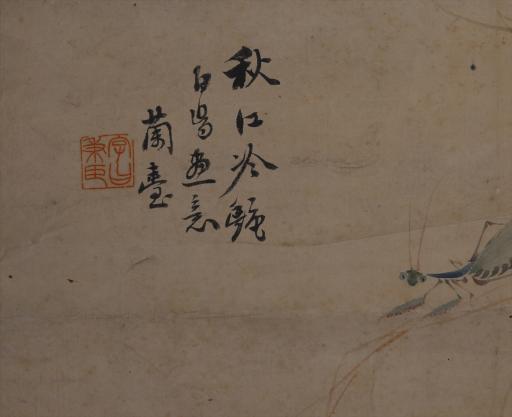 秋江冷艷
白陽画意
蘭臺